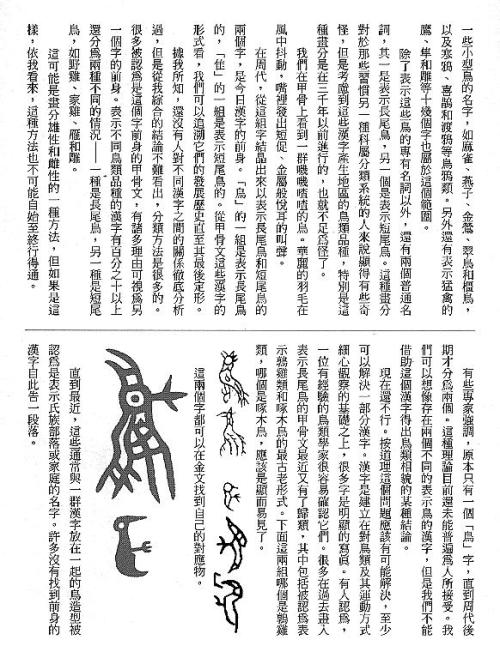 一些小型鳥的名字，如麻雀、燕子、金鶯、翠鳥和檀鳥，
以及寒鴉、喜鵲和渡鴉等鳥鴉類。另外還有表示猛禽的
鷹、隼和雕等十幾個字也屬於這個範圍。
除了表示這些鳥的專有名詞以外，還有兩個普通名
詞，其一是表示長尾鳥，另一個是表示短尾鳥。這種畫分
對於那些習慣另一種科屬分類系統的人來說顯得有些奇
怪，但是考慮到這些漢字產生地區的鳥類品種，特別是這
種畫分是在三千年以前進行的，也就不足爲怪了。
我們在甲骨文上看到一群嘰嘰喳喳的鳥。華麗的羽毛在
風中抖動，嘴裡發出短促、金屬般悅耳的叫聲。
在周代，從這組字結晶出來以表示長尾鳥和短尾鳥的
兩個字，是今日漢字的前身。「鳥」的一組是表示長尾鳥
的，「隹」的一組是表示短尾鳥的。從甲骨文這些漢字的
形式看，我們可以追溯它們的發展歷史直至其最後定形。
據我所知，還沒有人對不同漢字之間的關係徹底分析
過，但是從我綜合的結論不難看出，分類方法是很多的。
很多被認爲是這個字前身的甲骨文，有諸多理由可視爲另
一個字的前身。表示不同鳥類品種的漢字有百分之十以上
還分爲兩種不同的情況——一種是長尾鳥，另一種是短尾
鳥，如野雞、家雞、雁和雕。
這可能是畫分雄性和雌性的一種方法，但如果是這
樣，依我看來，這種方法也不可能自始至終行得通。
有些專家強調，原本只有一個「鳥」字，直到周代後
期才分爲兩個。這種理論目前還未能普遍爲人所接受。我
們可以想像存在兩個不同的表示鳥的漢字，但是我們不能
借助這個漢字得出鳥類相貌的某種結論。
現在還不行。按道理這個問題應該有可能解決，至少
可以解決一部分漢字。漢字是建立在對鳥類及其運動方式
細心觀察的基礎之上，很多字是明顯的寫真。有人認爲，
一位有經驗的鳥類學家很容易確認它們。很多在過去畫入
表示長尾鳥的甲骨文最近又有了歸類，其中包括被認爲表
示鶉雞類和啄木鳥的最古老形式。下面這兩組哪個是鶉雞
類，哪個是啄木鳥，應該是顯而易見了。
這兩個字都可以在金文找到自己的對應物。
直到最近，這些通常與一群漢字放在一起的鳥造型被
認爲是表示氏族部落或家庭的名字。許多沒有找到前身的
漢字自此告一段落。